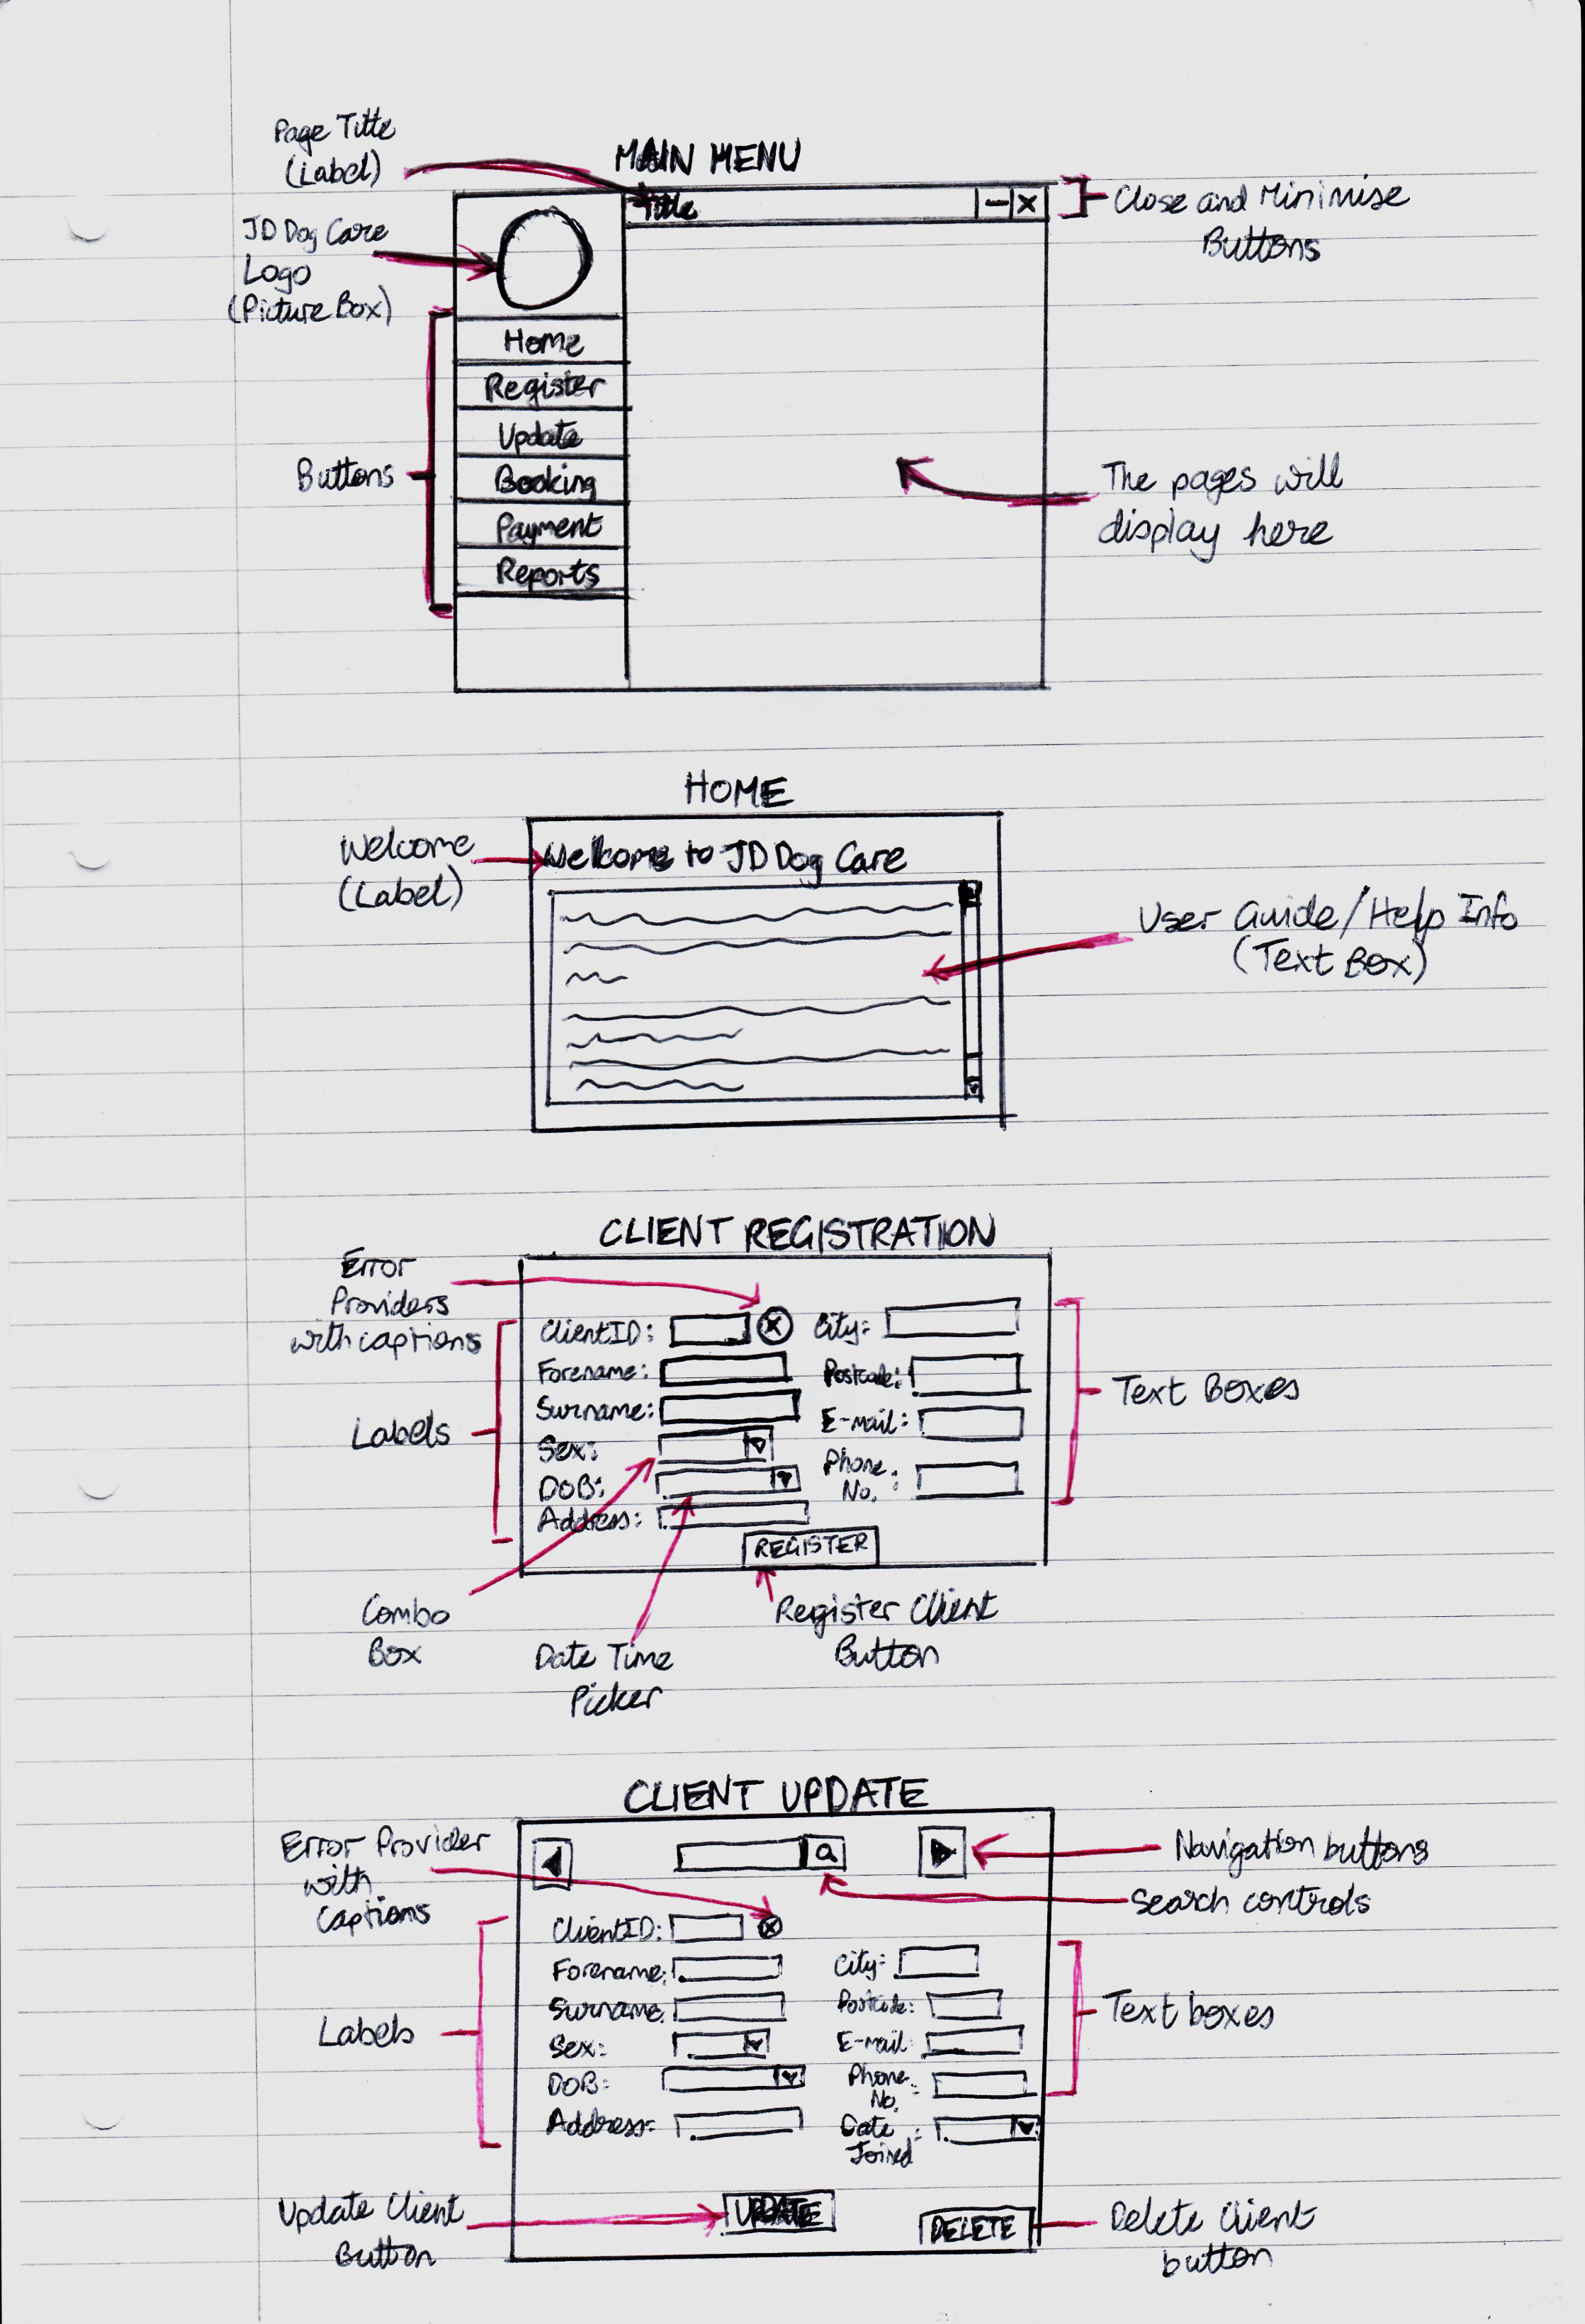 MAIN MENU
Page Title
(Label)
Title
Close and Minimise
Buttons
JD Dog Care
Logo
(Picture Box)
Home
Register
Update
Booking
Payment
Reports
Buttons
The pages will
display here
HOME
Welcome
(Label)
Welcome to JD Dog Care
User Guide/Help Info
(Text Box)
CLIENT REGISTRATION
Error
Providers
with captions
Labels
ClientID:
Forename:
Surname:
Sex:
DOB:
Address:
City:
Postcode:
E-mail:
Phone
No. :
REGISTER
Text Boxes
Combo
Box
Date Time
Picker
Register Client
Button
CLIENT UPDATE
Error Provider
with
Captions
Navigation buttons
Search controls
Labels
ClientID:
Forename:
Surname:
Sex:
DOB:
Address:
City:
Postcode:
E-mail:
Phone
No. :
Date
Joined :
Text boxes
UPDATE
DELETE
Update Client
Button
Delete Client
button